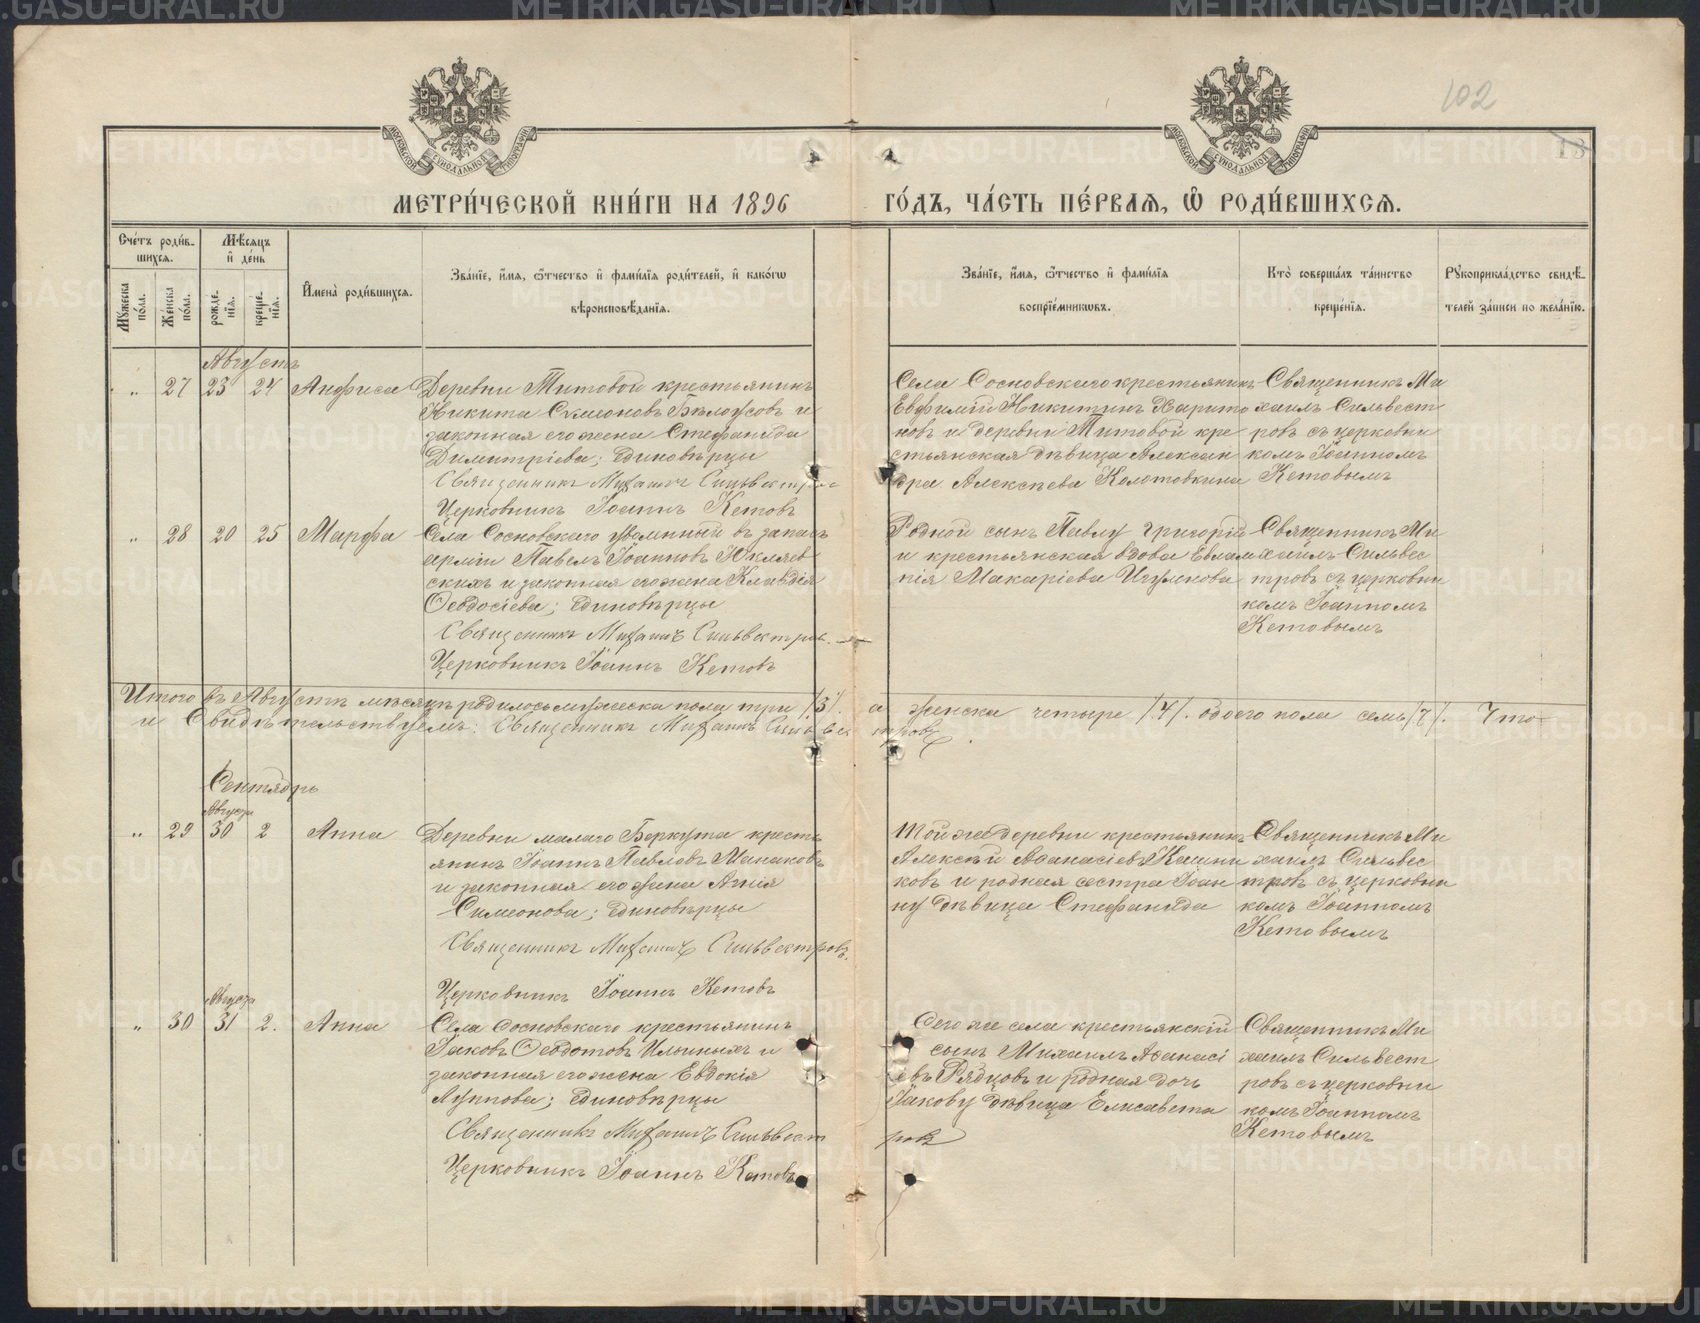 102
13
МОСКОВСКОЙ СѴНОДАЛЬНОЙ ТИПОГРАФІИ
МОСКОВСКОЙ СѴНОДАЛЬНОЙ ТИПОГРАФІИ
МЕТРИ́ЧЕСКОЙ КНИ́ГИ НА 1896 ГО́ДЪ, ЧА́СТЬ ПЕ́РВАѦ, Ѽ РОДИ́ВШИХСѦ.
Сче́тъ роди́в-
шихсѧ.
Мꙋжеска по́ла.
Же́нска по́ла.
Мѣ́сѧцъ
и҆ де́нь
рожде-
нїѧ.
креще-
нїѧ.
И҆мена̀ роди́вшихсѧ.
Зва́нїе, и҆́мѧ, ѻ҆́тчество и҆ фами́лїѧ роди́телей, и҆ како́гѡ
вѣроисповѣ́данїѧ.
Зва́нїе, и҆́мѧ, ѻ҆́тчество и҆ фами́лїѧ
воспрїе́мникѡвъ.
Кто̀ соверша́лъ та́инство
креще́нїѧ.
Рꙋкоприкла́дство свидѣ́-
телей за́писи по жела́нїю.
Августъ
" 27 23 24 Анфиса
Деревни Титовой крестьянинъ
Никита Симеоновъ Бѣлоусовъ и
законная его жена Стефанида
Димитріева; единовѣрцы
Священникъ Михаилъ Сильвестров
Церковникъ Іоаннъ Кетовъ
Села Сосновскаго крестьянинъ
Евфимій Никитинъ Харито
новъ и деревни Титовой кре
стьянская дѣвица Алексан
дра Алексѣева Колотовкина
Священникъ Ми
хаилъ Сильвест
ровъ съ церковни
комъ Іоанномъ
Кетовымъ
" 28 20 25 Марфа
Села Сосновскаго уволенный въ запасъ
арміи Павелъ Іоанновъ Юкляев
скихъ и законная его жена Клавдія
Ѳеодосіева; единовѣрцы
Священникъ Михаилъ Сильвестров.
Церковникъ Іоаннъ Кетовъ
Родной сынъ Павлу Григорій
и крестьянская вдова Евлам
пія Макаріева Игумнова
Священникъ Ми
хаилъ Сильвес
тровъ съ церковни
комъ Іоанномъ
Кетовымъ
Итого въ Августѣ мѣсяцѣ родилось мужеска пола три /3/. а женска четыре /4/. обоего пола семь /7/. Что
и свидѣтельствуемъ: Священникъ Михаилъ Сильвестровъ
Сентябрь
Августа
" 29 30 2 Анна
Деревни малаго Беркута кресть
янинъ Іоаннъ Павловъ Манаковъ
и законная его жена Агнія
Симеонова; единовѣрцы
Священникъ Михаилъ Сильвестровъ.
Церковникъ Іоаннъ Кетовъ
Той же деревни крестьянинъ
Алексѣй Аѳанасіевъ Кашни
ковъ и родная сестра Іоан
ну дѣвица Стефанида
Священникъ Ми
хаилъ Сильвес
тровъ съ церковни
комъ Іоанномъ
Кетовымъ
Августа
" 30 31 2. Анна
Села Сосновскаго крестьянинъ
Іаковъ Ѳеодотовъ Ильиныхъ и
законная его жена Евдокія
Луппова; единовѣрцы
Священникъ Михаилъ Сильвестровъ
Церковникъ Іоаннъ Кетовъ
Сего же села крестьянскій
сынъ Михаилъ Аѳанасі
евъ Рядцовъ и родная дочь
Іакову дѣвица Елисавета
Священникъ Ми
хаилъ Сильвест
ровъ съ церковни
комъ Іоанномъ
Кетовымъ
METRIKI.GASO-URAL.RU